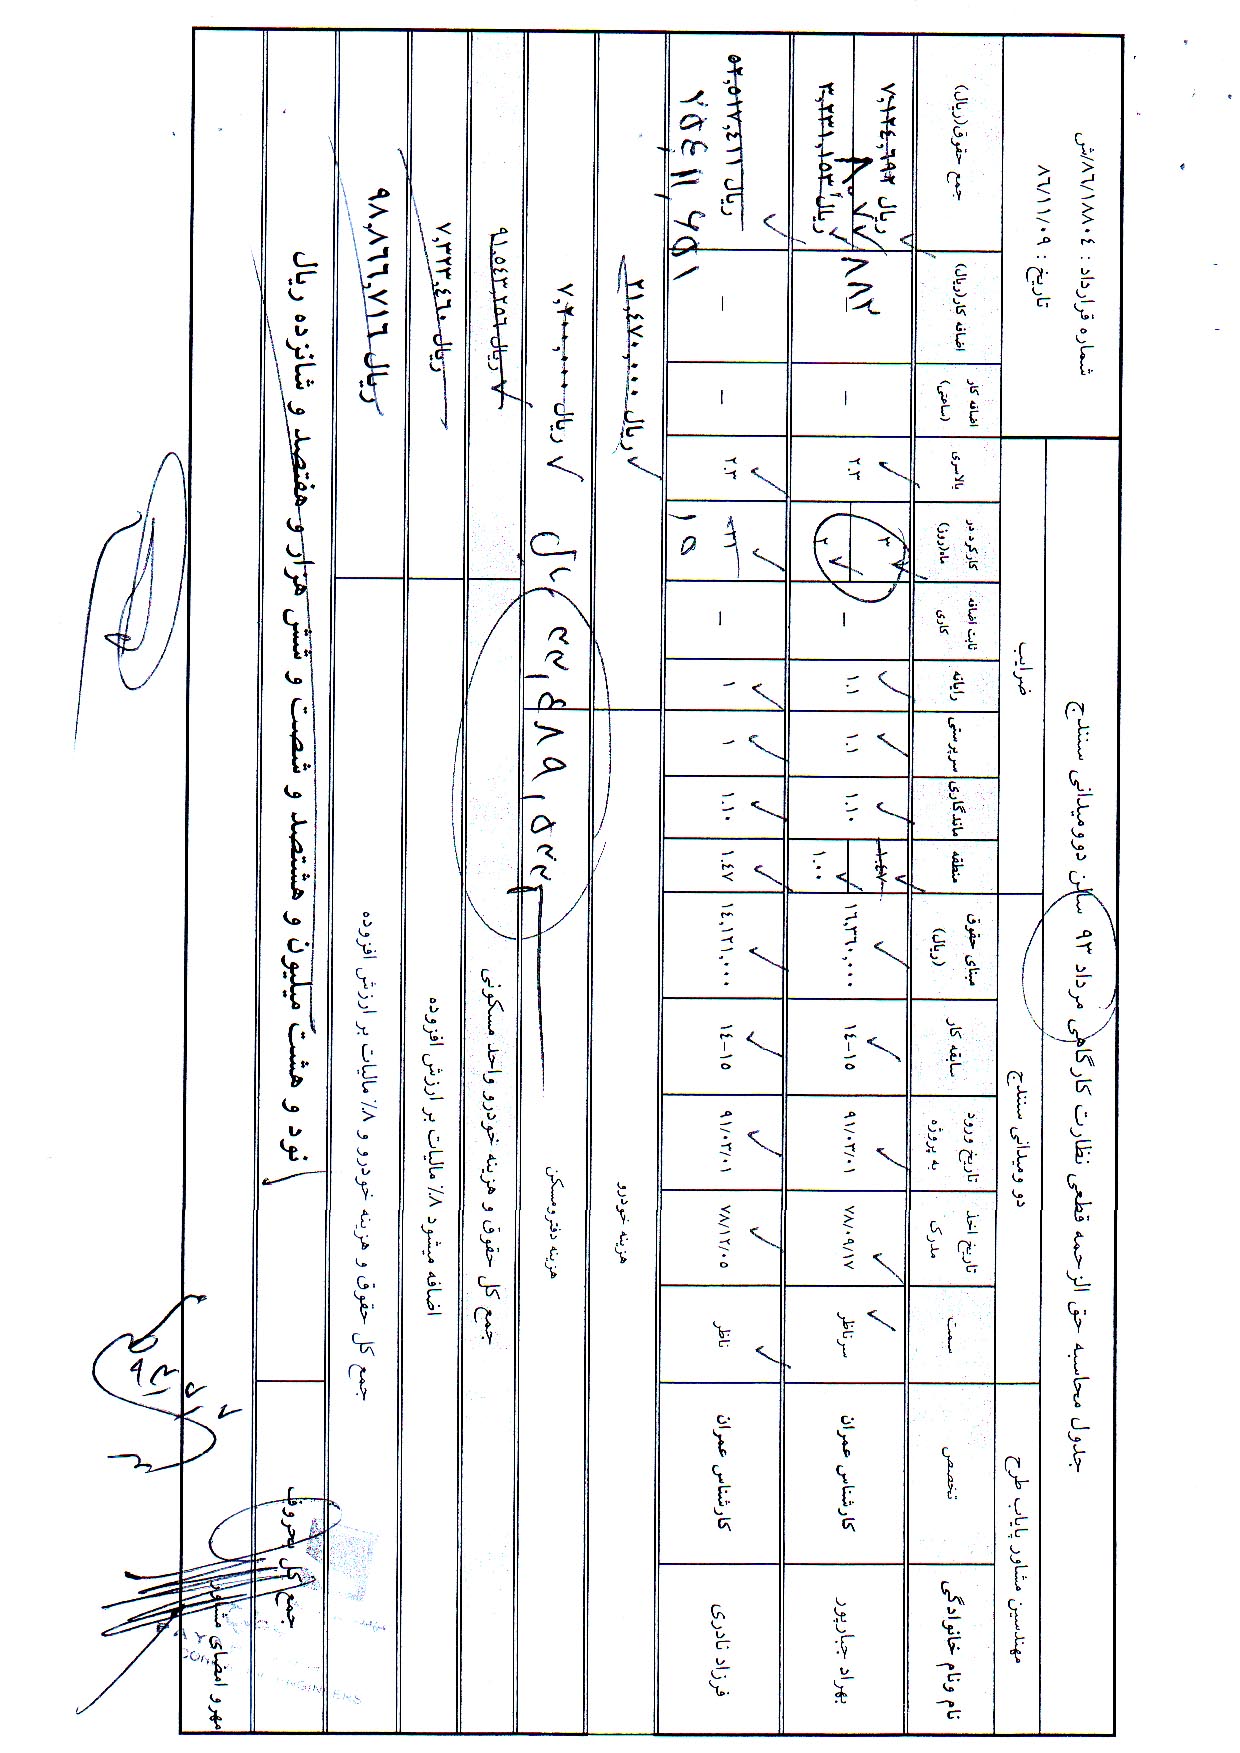 جدول محاسبه حق الزحمه قطعی نظارت کارگاهی مرداد ۹۳ سالن دوومیدانی سنندج
شماره قرارداد : ۸۶/۱۸۸۰۴/ش
تاریخ : ۸۶/۱۱/۰۹
مهندسین مشاور پایاب طرح
دو ومیدانی سنندج
ضرایب
نام ونام خانوادگی
تخصص
سمت
تاریخ اخذ مدرک
تاریخ ورود به پروژه
سابقه کار
مبنای حقوق (ریال)
منطقه
ماندگاری
سرپرستی
رایانه
ثابت اضافه کاری
کارکرد در ماه(روز)
بالاسری
اضافه کار (ساعتی)
اضافه کار(ریال)
جمع حقوق(ریال)
بهراد جبارپور
کارشناس عمران
سرناظر
۷۸/۰۹/۱۷
۹۱/۰۳/۰۱
۱۴-۱۵
۱۶,۳۶۰,۰۰۰
۱.۴۷
۱.۰۰
۱.۱۰
۱.۱
۱.۱
–
۳
۲
۲.۳
–
–
۷,۱۲۴,۶۹۲ ریال
۳,۲۳۱,۱۵۳ ریال
۸۰۷۷۸۸۲
فرزاد نادری
کارشناس عمران
ناظر
۷۸/۱۲/۰۵
۹۱/۰۳/۰۱
۱۴-۱۵
۱۴,۱۲۱,۰۰۰
۱.۴۷
۱.۱۰
۱
۱
–
۳۱
۱۵
۲.۳
–
–
۵۲,۵۱۷,۴۱۱ ریال
۲۵۴۱۱۶۵۱
هزینه خودرو
۲۱,۴۷۰,۰۰۰ ریال
هزینه دفترومسکن
۷,۲۰۰,۰۰۰ ریال
جمع کل حقوق و هزینه خودرو واحد مسکونی
۹۱,۵۴۳,۲۵۶ ریال
اضافه میشود ۸٪ مالیات بر ارزش افزوده
۷,۳۲۳,۴۶۰ ریال
جمع کل حقوق و هزینه خودرو و ۸٪ مالیات بر ارزش افزوده
۹۸,۸۶۶,۷۱۶ ریال
جمع کل بحروف
نود و هشت میلیون و هشتصد و شصت و شش هزار و هفتصد و شانزده ریال
مهر و امضای مشاور